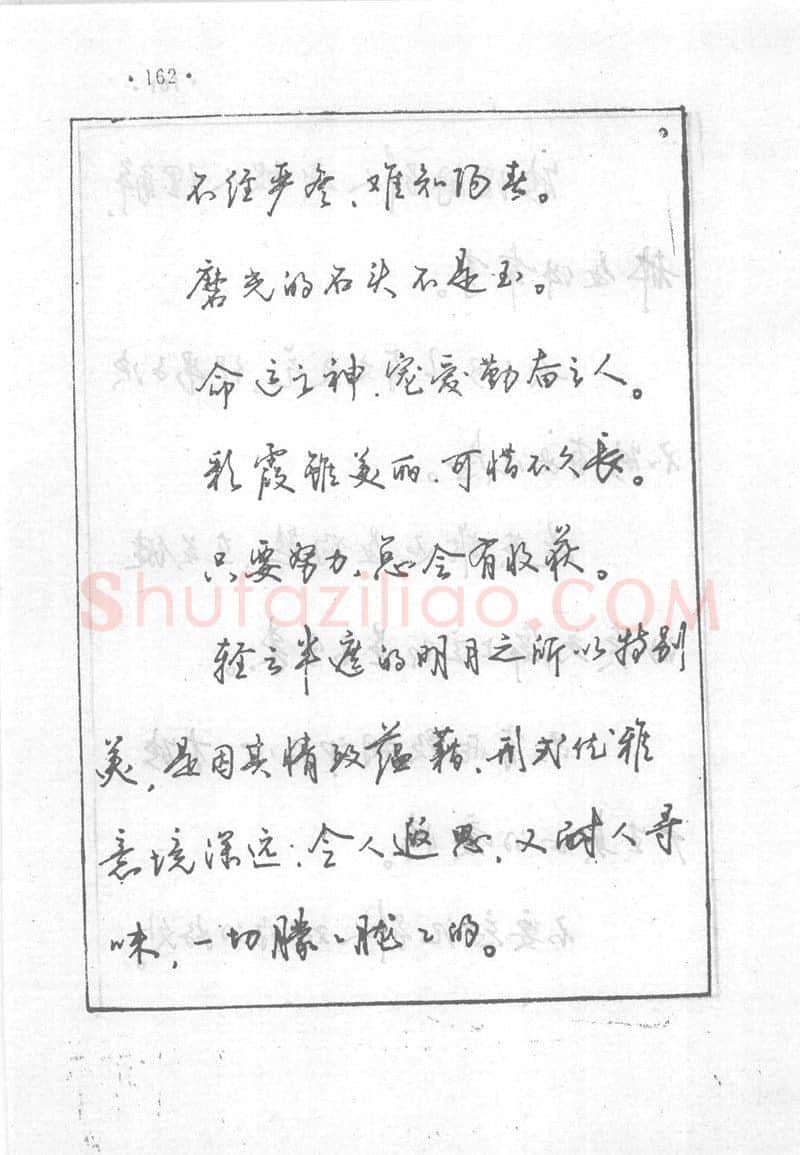 ·162·
不经严冬、难知阳春。
磨光的石头不是玉。
命运之神、宠爱勤奋之人。
彩霞虽美丽、可惜不久长。
只要努力、总会有收获。
Shufaziliao.COM
轻云半遮的明月之所以特别
美，是因其情致蕴藉、形式优雅
意境深远、令人遐思，又耐人寻
味，一切朦〻胧〻的。